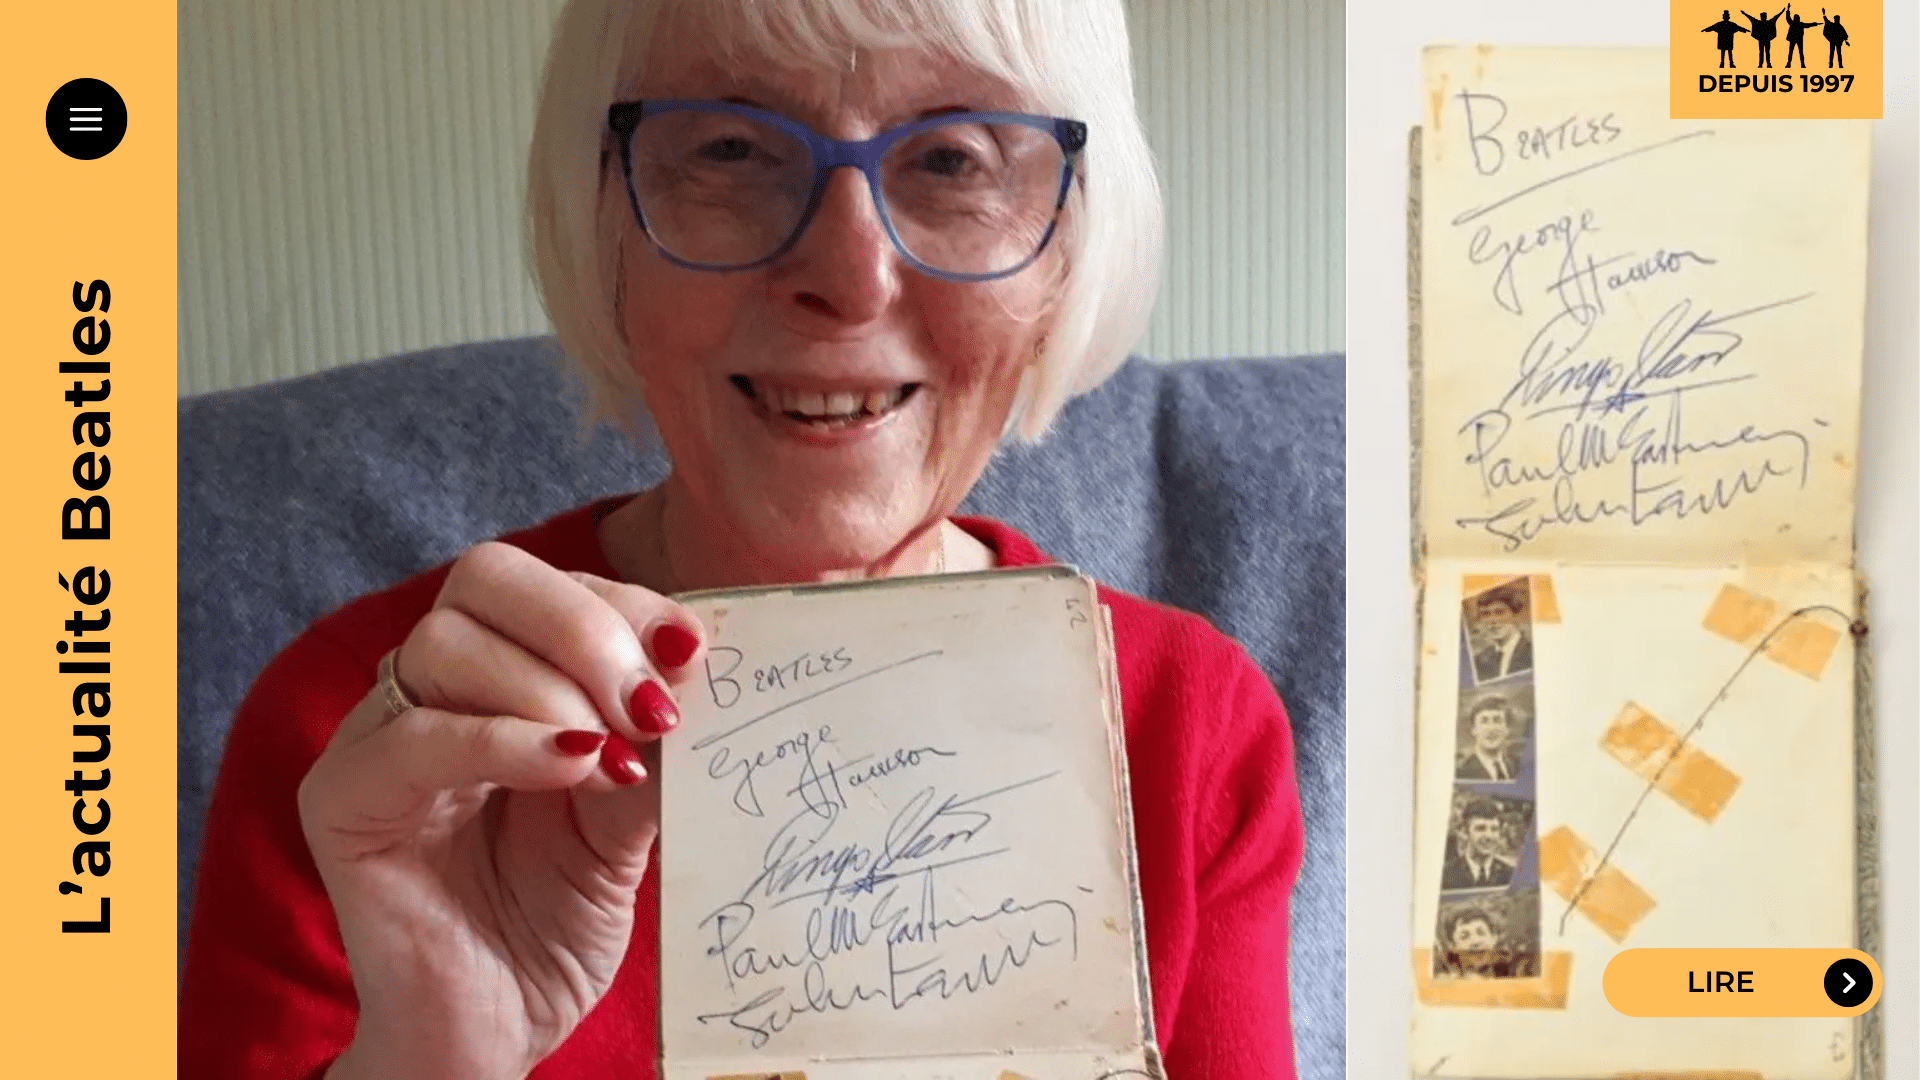 L'actualité Beatles
BEATLES
George
Harrison
Ringo Starr
Paul McCartney
John Lennon
DEPUIS 1997
BEATLES
George
Harrison
Ringo Starr
Paul McCartney
John Lennon
LIRE